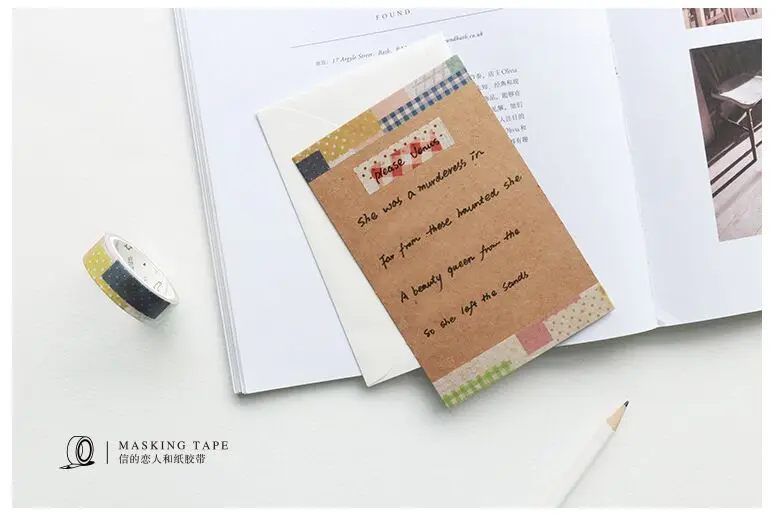 FOUND
17 Argyle Street, Bath,
undbath.co.uk
店主 Olivia
经典和现
能够在
Olivia 和
please Venus
She was a murderess in
Far from these haunted she
A beauty queen from the
So she left the sands
MASKING TAPE
信的恋人和纸胶带